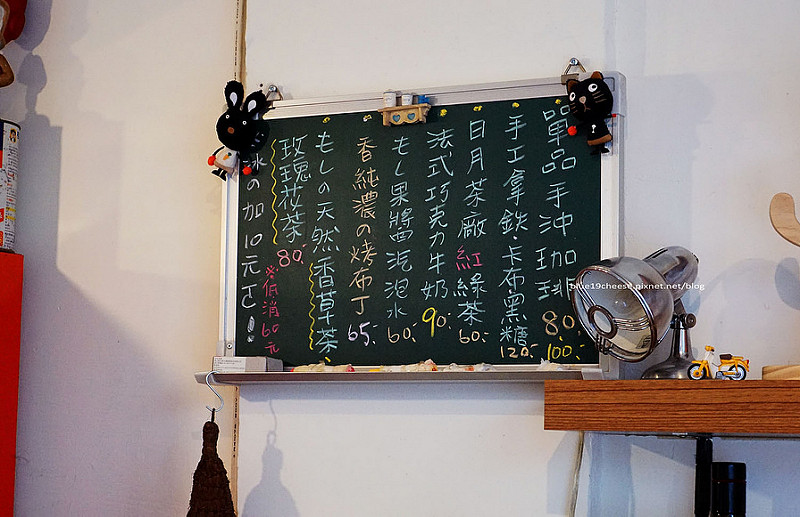 單品手沖珈琲 80. 100.
手工拿鉄.卡布黑糖 120.
日月茶廠紅綠茶 60.
法式巧克力牛奶 90.
もし果醬汽泡水 60.
香純濃の烤布丁 65.
もしの天然香草茶
玫瑰花茶 80.
※低消60元
冰の加10元
blue19cheese.pixnet.net/blog